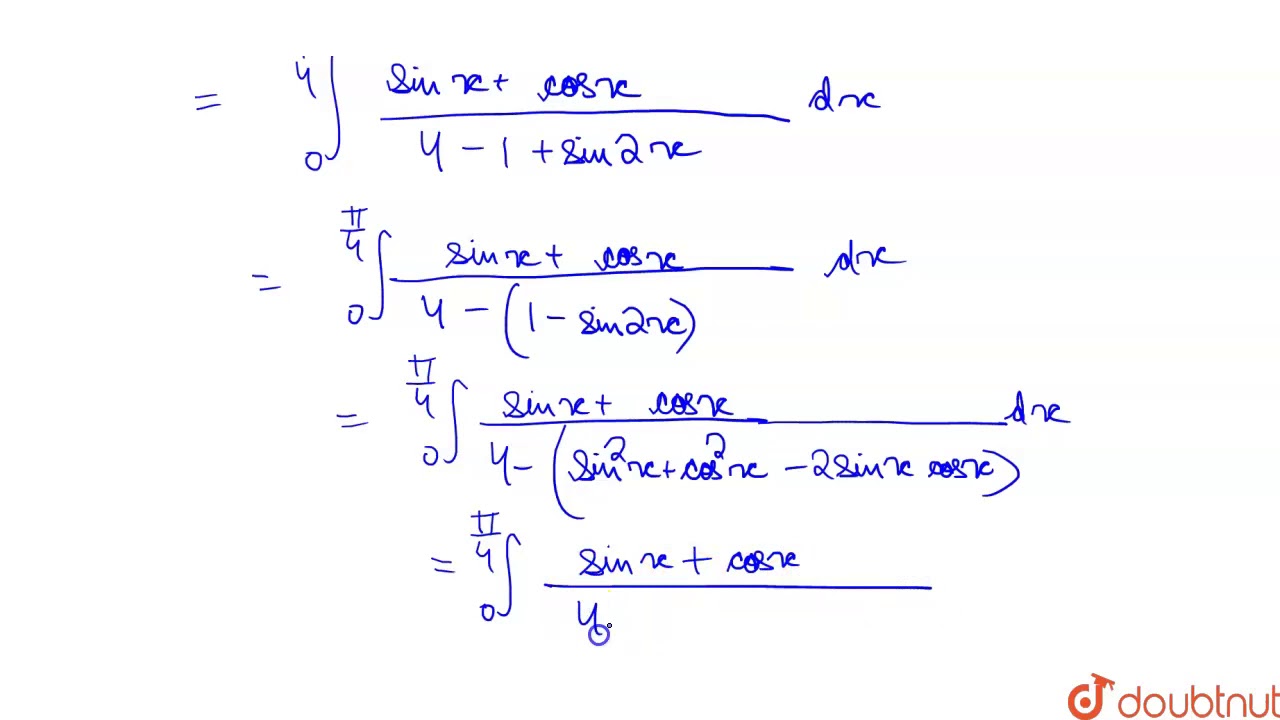 = ∫₀^4 (sin x + cos x)/(4 - 1 + sin 2x) dx
= ∫₀^(π/4) (sin x + cos x)/(4 - (1 - sin 2x)) dx
= ∫₀^(π/4) (sin x + cos x)/(4 - (sin²x + cos²x - 2 sin x cos x)) dx
= ∫₀^(π/4) (sin x + cos x)/(4
doubtnut